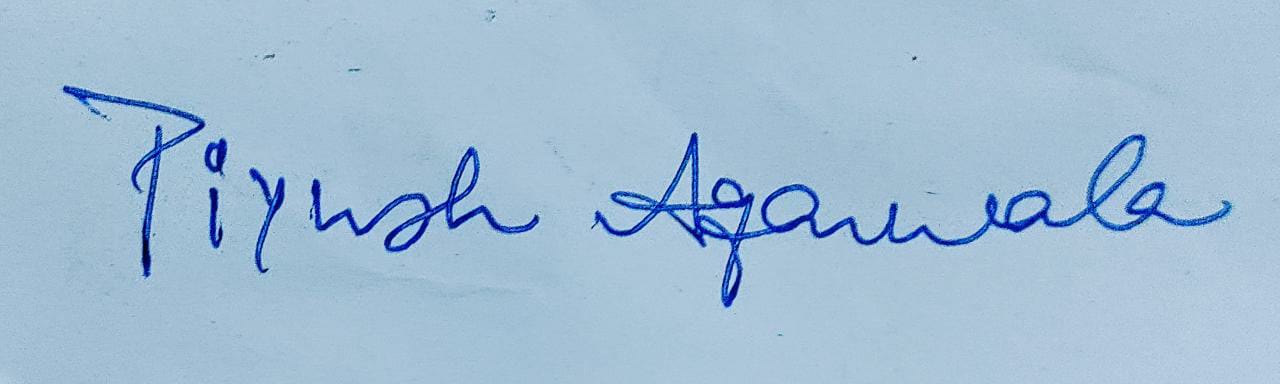 Piyush Agarwala